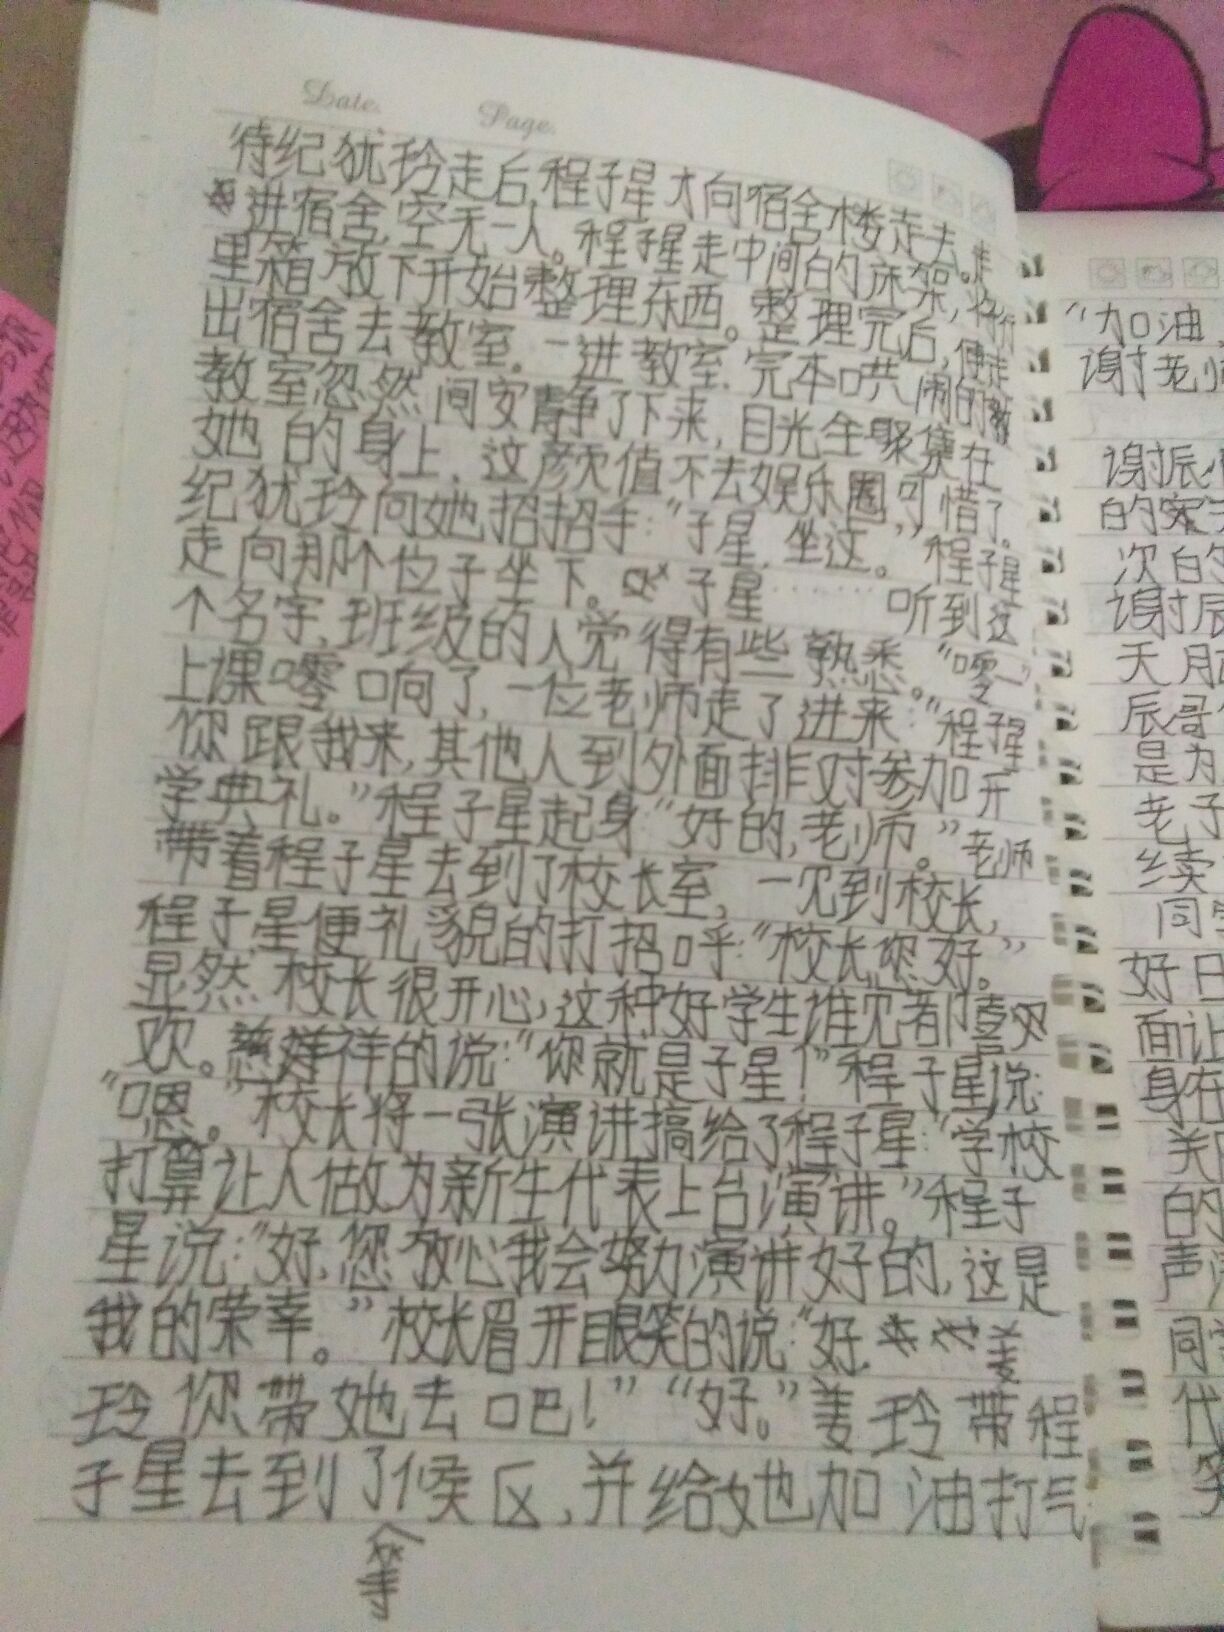 Date. Page.
待纪犹玲走后,程子星才向宿舍楼走去。走
进宿舍,空无一人。程子星走中间的床架,将行
里箱放下开始整理东西。整理完后,便走
出宿舍去教室。一进教室,完本哄闹的教
教室忽然间安静了下来,目光全聚集在
她的身上,这颜值不去娱乐圈可惜了。
纪犹玲向她招招手:“子星,坐这。”程子星
走向那个位子坐下。子星……听到这
个名字,班级的人觉得有些熟悉。“嘤—”
上课嘤响了,一位老师走了进来:“程子星
你跟我来,其他人到外面排对参加开
学典礼。”程子星起身“好的,老师。”老师
带着程子星去到了校长室,一见到校长,
程子星便礼貌的打招呼:“校长您好。”
显然,校长很开心,这种好学生谁见都喜
欢。慈祥的说:“你就是子星!”程子星说:
“嗯。”校长将一张演讲搞给了程子星:“学校
打算让人做为新生代表上台演讲。”程子
星说:“好,您放心我会努力演讲好的,这是
我的荣幸。”校长眉开眼笑的说:“好,姜
玲你带她去吧!”“好。”姜玲带程
子星去到了候区,并给她加油打气
等
“加油,
谢老师
谢辰
的
次的
谢辰
天
辰哥
是为
老子
续
同学
好日
面让
身在
关
的
声
同学
代
笑